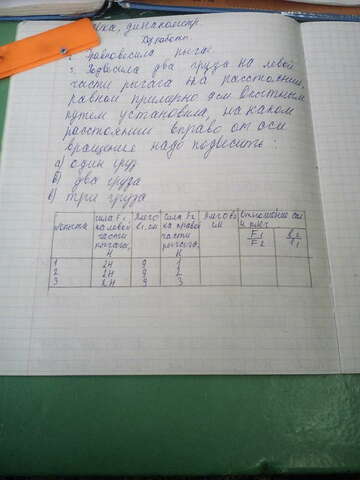 динамометр.
Ход работы.
1. Уравновесила рычаг.
2. Подвесила два груза на левой
части рычага на расстоянии,
равном примерно 9см. Опытным
путем установила, на каком
расстоянии вправо от оси
вращения надо подвесить:
а) один груз
в) два груза
в) три груза
№опыта | Сила F1 на левой части рычага, Н | Плечо l1, см | Сила F2 на правой части рычага, Н | Плечо l2 см | Отношение сил и плеч F1/F2 | l2/l1
1 | 2н | 9 | 1
2 | 2н | 9 | 2
3 | 2н | 9 | 3